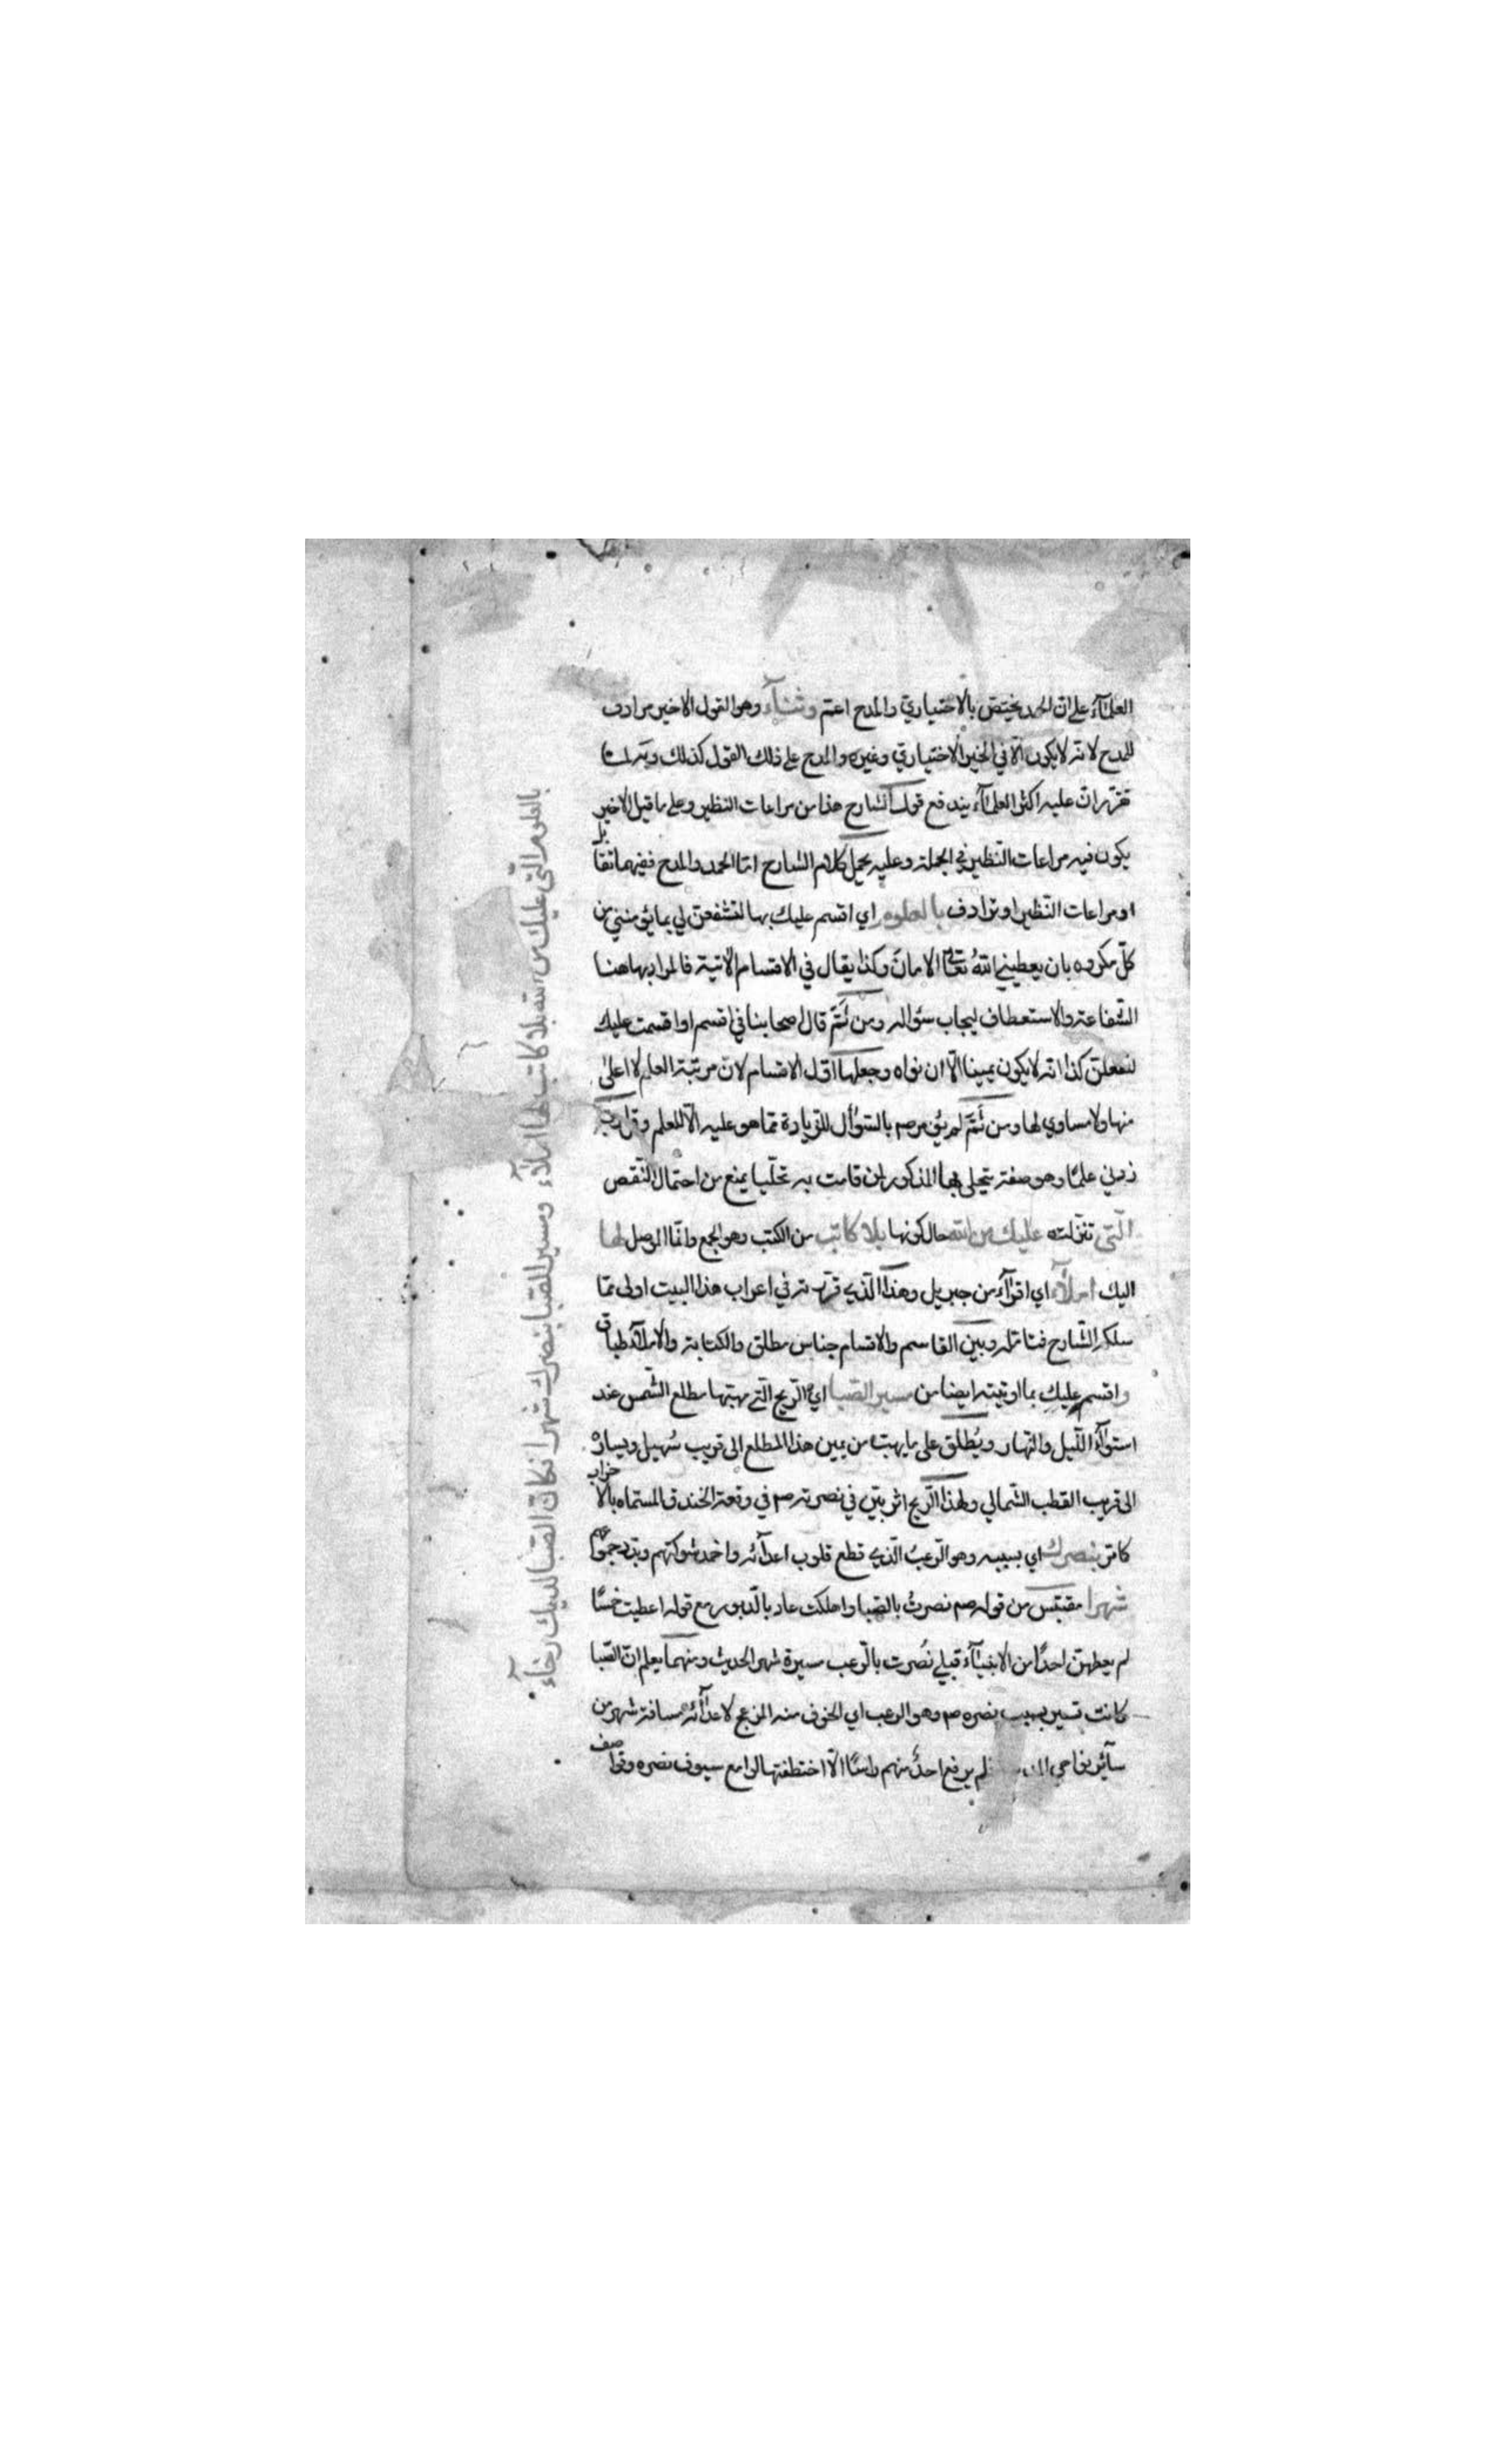 العلمآء على ان الحمد يختص بالاختياري والمدح اعم وثنآء وهو القول الاخير مرادف
للمدح لانه لا يكون الا في الخير الاختياري وغيره والمدح على ذلك القول كذلك وبه
تقرر ان عليه اكثر العلمآء يندفع قول الشارح هذا من مراعات النظير وعلى ما قيل الاخير
يكون فيه مراعات النظير في الجملة وعليه يحمل كلام الشارح اما الحمد والمدح ففيهما تقابل
او مراعات النظير او ترادف بالعلوم اي اقسم عليك بها لتشفعن لي بما يؤمنني من
كل مكروه بان يعطيني الله تعالى الامان وكذا يقال في الاقسام الاتية فالمراد بها هنا
الشفاعة والاستعطاف ليجاب سؤاله ومن ثم قال اصحابنا في اقسم او اقسمت عليك
لتفعلن كذا انه لا يكون يمينا الا ان نواه وجعلها اول الاقسام لان مرتبة العلم لا اعلى
منها ولا مساوي لها ومن ثم لم يؤمر صم بالسؤال للزيادة مما هو عليه الا للعلم وقل رب
زدني علمًا وهو صفة يتجلى بها المذكور لمن قامت به تجليا يمنع من احتمال النقص
التي تنزلت عليك من الله حال كونها بلا كاتب من الكتب وهو الجمع وانما الموصل لها
اليك املآء اي اقرآء من جبريل وهذا الذي قررته في اعراب هذا البيت اولى مما
سلكه الشارح فتامله وبين القاسم والاقسام جناس مطلق والكتابة والاملآء طباق
واقسم عليك بما اوتيته ايضا من مسير الصبا اي الريح التي مهبها مطلع الشمس عند
استوآء الليل والنهار ويُطلق على ما يهب من يمين هذا المطلع الى قريب سُهيل ويساره
الى قريب القطب الشمالي ولهذا الريح اثر بيّن في نصرته صم في وقعة الخندق المسماه بالاحزاب
كامن بنصرك اي بسببه وهو الرعبُ الذي قطع قلوب اعدآئه واخمد شوكتهم وبدد جموعهم
شهرا مقتبس من قوله صم نصرتُ بالصبا واهلكت عاد بالدبور مع قوله اعطيت خمسًا
لم يعطهن احدًا من الانبيآء قبلي نُصرت بالرعب مسيرة شهر الحديث ومنهما يعلم ان الصبا
كانت تسير بسبب نصره صم وهو الرعب اي الخوف منه المزعج لاعدآئه مسافة شهر من
سآئر نواحي فلم يرفع احدٌ منهم راسًا الا اختطفتها لوامع سيوف نصره وقواصف
بالعلوم التي عليك من الله بلا كاتب لها املآء ومسير الصبا بنصرك شهرا نكان الصبا لديك رخآء